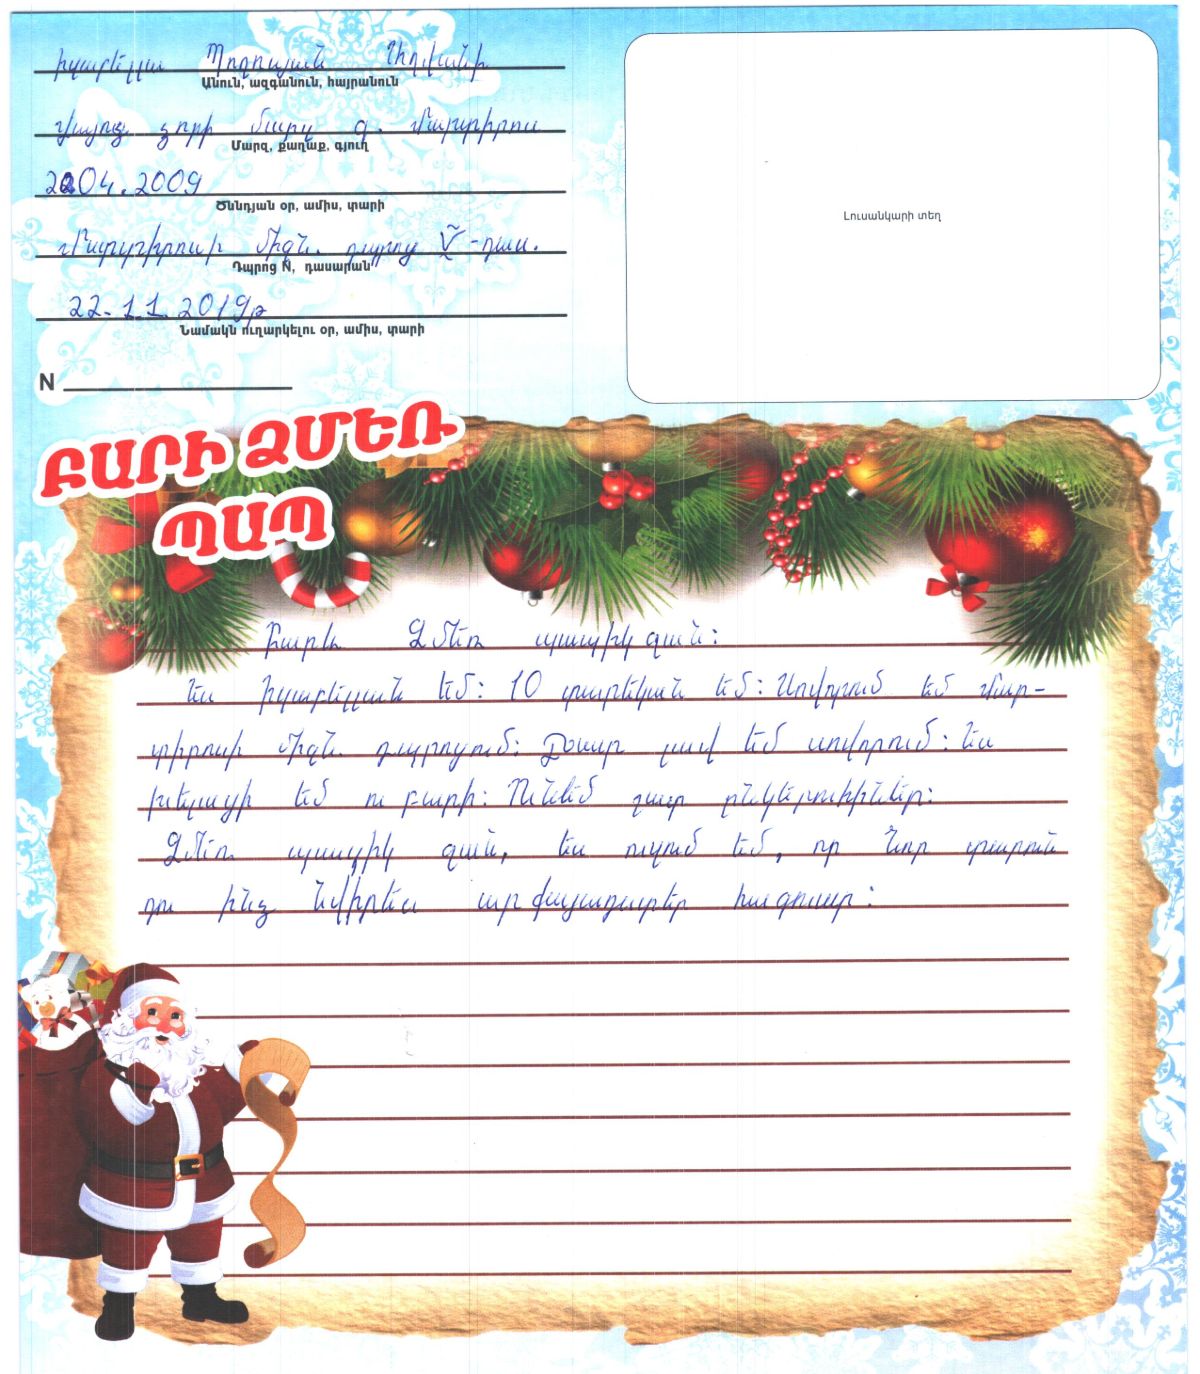 Իզաբելլա Պողոսյան Հովհանի
Անուն, ազգանուն, հայրանուն
Վայոց ձորի մարզ գ. Մարտիրոս
Մարզ, քաղաք, գյուղ
04.2009
Ծննդյան օր, ամիս, տարի
Մարտիրոսի միջն. դպրոց V -դաս.
Դպրոց N, դասարան
22.11.2019թ
Նամակն ուղարկելու օր, ամիս, տարի
N
Լուսանկարի տեղ
ԲԱՐԻ ՁՄԵՌ
ՊԱՊ
Բարև Ձմեռ պապիկ ջան:
Ես Իզաբելլան եմ: 10 տարեկան եմ: Սովորում եմ Մար-
տիրոսի միջն. դպրոցում: Շատ լավ եմ սովորում: Ես
խելացի եմ ու բարի: Ունեմ շատ ընկերուհիներ:
Ձմեռ պապիկ ջան, ես ուզում եմ, որ Նոր տարուն
դու ինձ նվիրես արքայադստեր հագուստ: